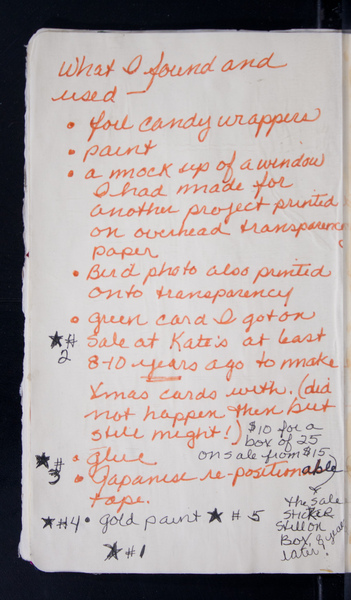 What I found and
used —
• foil candy wrappers
• paint
• a mock up of a window
I had made for
another project printed
on overhead transparency
paper
• Bird photo also printed
onto transparency
• green card I got on
★#2 Sale at Kate's at least
8-10 years ago to make
Xmas cards with. (did
not happen then but
still might!)
$10 for a
box of 25
on sale from $15
★#3 • glue
• Japanese re-positionable
tape.
the sale
STICKER
still on
Box, 8 years
later!
★#4 • gold paint ★ #5
★#1